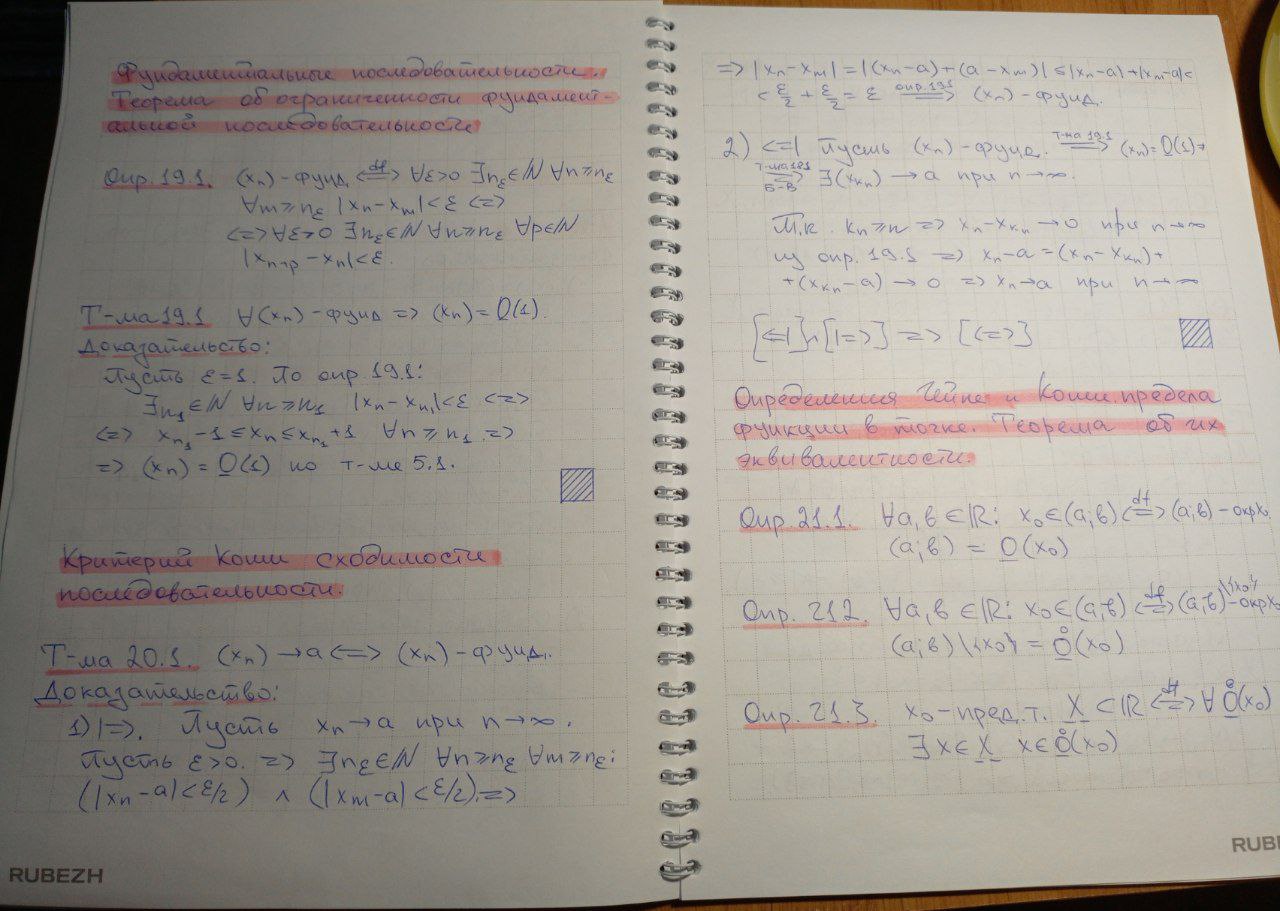 Фундаментальные последовательности.
Теорема об ограниченности фундамент-
альной последовательности
Опр. 19.1. (xₙ) - фунд. <=df=> ∀ε>0 ∃n_ε∈ℕ ∀n≥n_ε
∀m≥n_ε |xₙ-xₘ|<ε <=>
<=> ∀ε>0 ∃n_ε∈ℕ ∀n≥n_ε ∀p∈ℕ
|xₙ₊ₚ-xₙ|<ε.
Т-ма 19.1 ∀(xₙ) - фунд => (xₙ) = O(1).
Доказательство:
Пусть ε=1. По опр. 19.1:
∃n₁∈ℕ ∀n≥n₁ |xₙ-x_n₁|<ε <=>
<=> x_n₁-1≤xₙ≤x_n₁+1 ∀n≥n₁ =>
=> (xₙ) = O(1) по т-ме 5.1.
Критерий Коши сходимости
последовательности.
Т-ма 20.1. (xₙ)→a <=> (xₙ) - фунд.
Доказательство:
1) |=>. Пусть xₙ→a при n→∞.
Пусть ε>0. => ∃n_ε∈ℕ ∀n≥n_ε ∀m≥n_ε:
(|xₙ-a|<ε/2) ∧ (|xₘ-a|<ε/2) =>
RUBEZH
=> |xₙ-xₘ| = |(xₙ-a)+(a-xₘ)| ≤ |xₙ-a|+|xₘ-a|<
< ε/2 + ε/2 = ε =опр. 19.1=> (xₙ) - фунд.
2) <=| Пусть (xₙ) - фунд. =т-ма 19.1=> (xₙ) = O(1) =>
=т-ма 18.1 Б-В=> ∃(x_kₙ)→a при n→∞.
Т.к. kₙ≥n => xₙ-x_kₙ→0 при n→∞
из опр. 19.1 => xₙ-a = (xₙ-x_kₙ)+
+(x_kₙ-a)→0 => xₙ→a при n→∞
[<=|]∧[|=>] => [<=>]
Определения Гейне и Коши предела
функции в точке. Теорема об их
эквивалентности.
Опр. 21.1. ∀a,b∈ℝ: x₀∈(a;b) <=df=> (a;b) - окр x₀
(a;b) = O(x₀)
Опр. 21.2. ∀a,b∈ℝ: x₀∈(a;b) <=df=> (a;b)\{x₀} - окр x₀
(a;b)\{x₀} = O̊(x₀)
Опр. 21.3. x₀ - пред. т. X⊂ℝ <=df=> ∀O̊(x₀)
∃x∈X x∈O̊(x₀)
RUBE